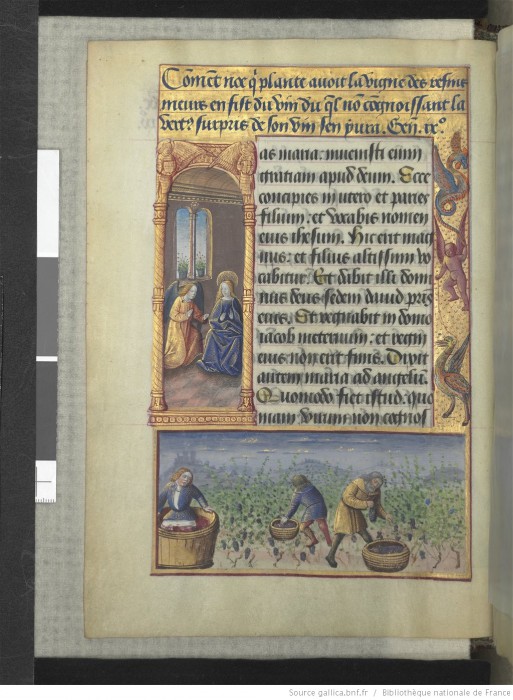 Com̄ēt noe q̄ plante auoit la vigne des resins
meurs en fist du vin du q̄l nō cōgnoissant la
vert᷑ surpris de son vin sen yura. Gen̄. ix°.
as maria: inuenisti enim
gratiam apud deum. Ecce
concipies in utero et paries
filium: et vocabis nomen
eius ihesum. Hic erit mag
nus: et filius altissimi vo
cabitur. Et dabit illi domi
nus deus sedem dauid pris
eius. Et regnabit in domo
iacob ineternum: et regni
eius non erit finis. Dixit
autem maria ad angelū.
Quomodo fiet istud: quo
niam virum non cognos
Source gallica.bnf.fr / Bibliothèque nationale de France